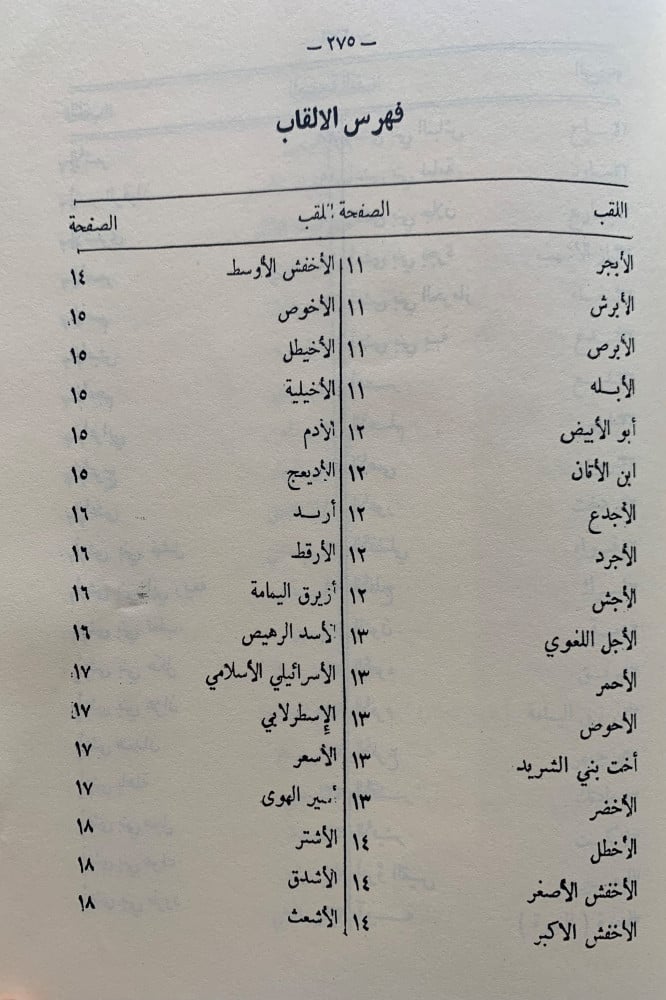 — ٢٧٥ —
فهرس الالقاب
اللقب الصفحة اللقب الصفحة
الأبجر ١١ الأخفش الأوسط ١٤
الأبرش ١١ الأخوص ١٥
الأبرص ١١ الأخيطل ١٥
الأبله ١١ الأخيلية ١٥
أبو الأبيض ١٢ الأدم ١٥
ابن الأتان ١٢ الأديعج ١٥
الأجدع ١٢ أربد ١٦
الأجرد ١٢ الأرقط ١٦
الأجش ١٢ أزيرق اليمامة ١٦
الأجل اللغوي ١٣ الأسد الرهيص ١٦
الأحمر ١٣ الأسرائيلي الأسلامي ١٧
الأحوص ١٣ الإسطرلابي ١٧
أخت بني الشريد ١٣ الأسعر ١٧
الأخضر ١٣ أسير الهوى ١٧
الأخطل ١٤ الأشتر ١٨
الأخفش الأصغر ١٤ الأشدق ١٨
الأخفش الاكبر ١٤ الأشعث ١٨